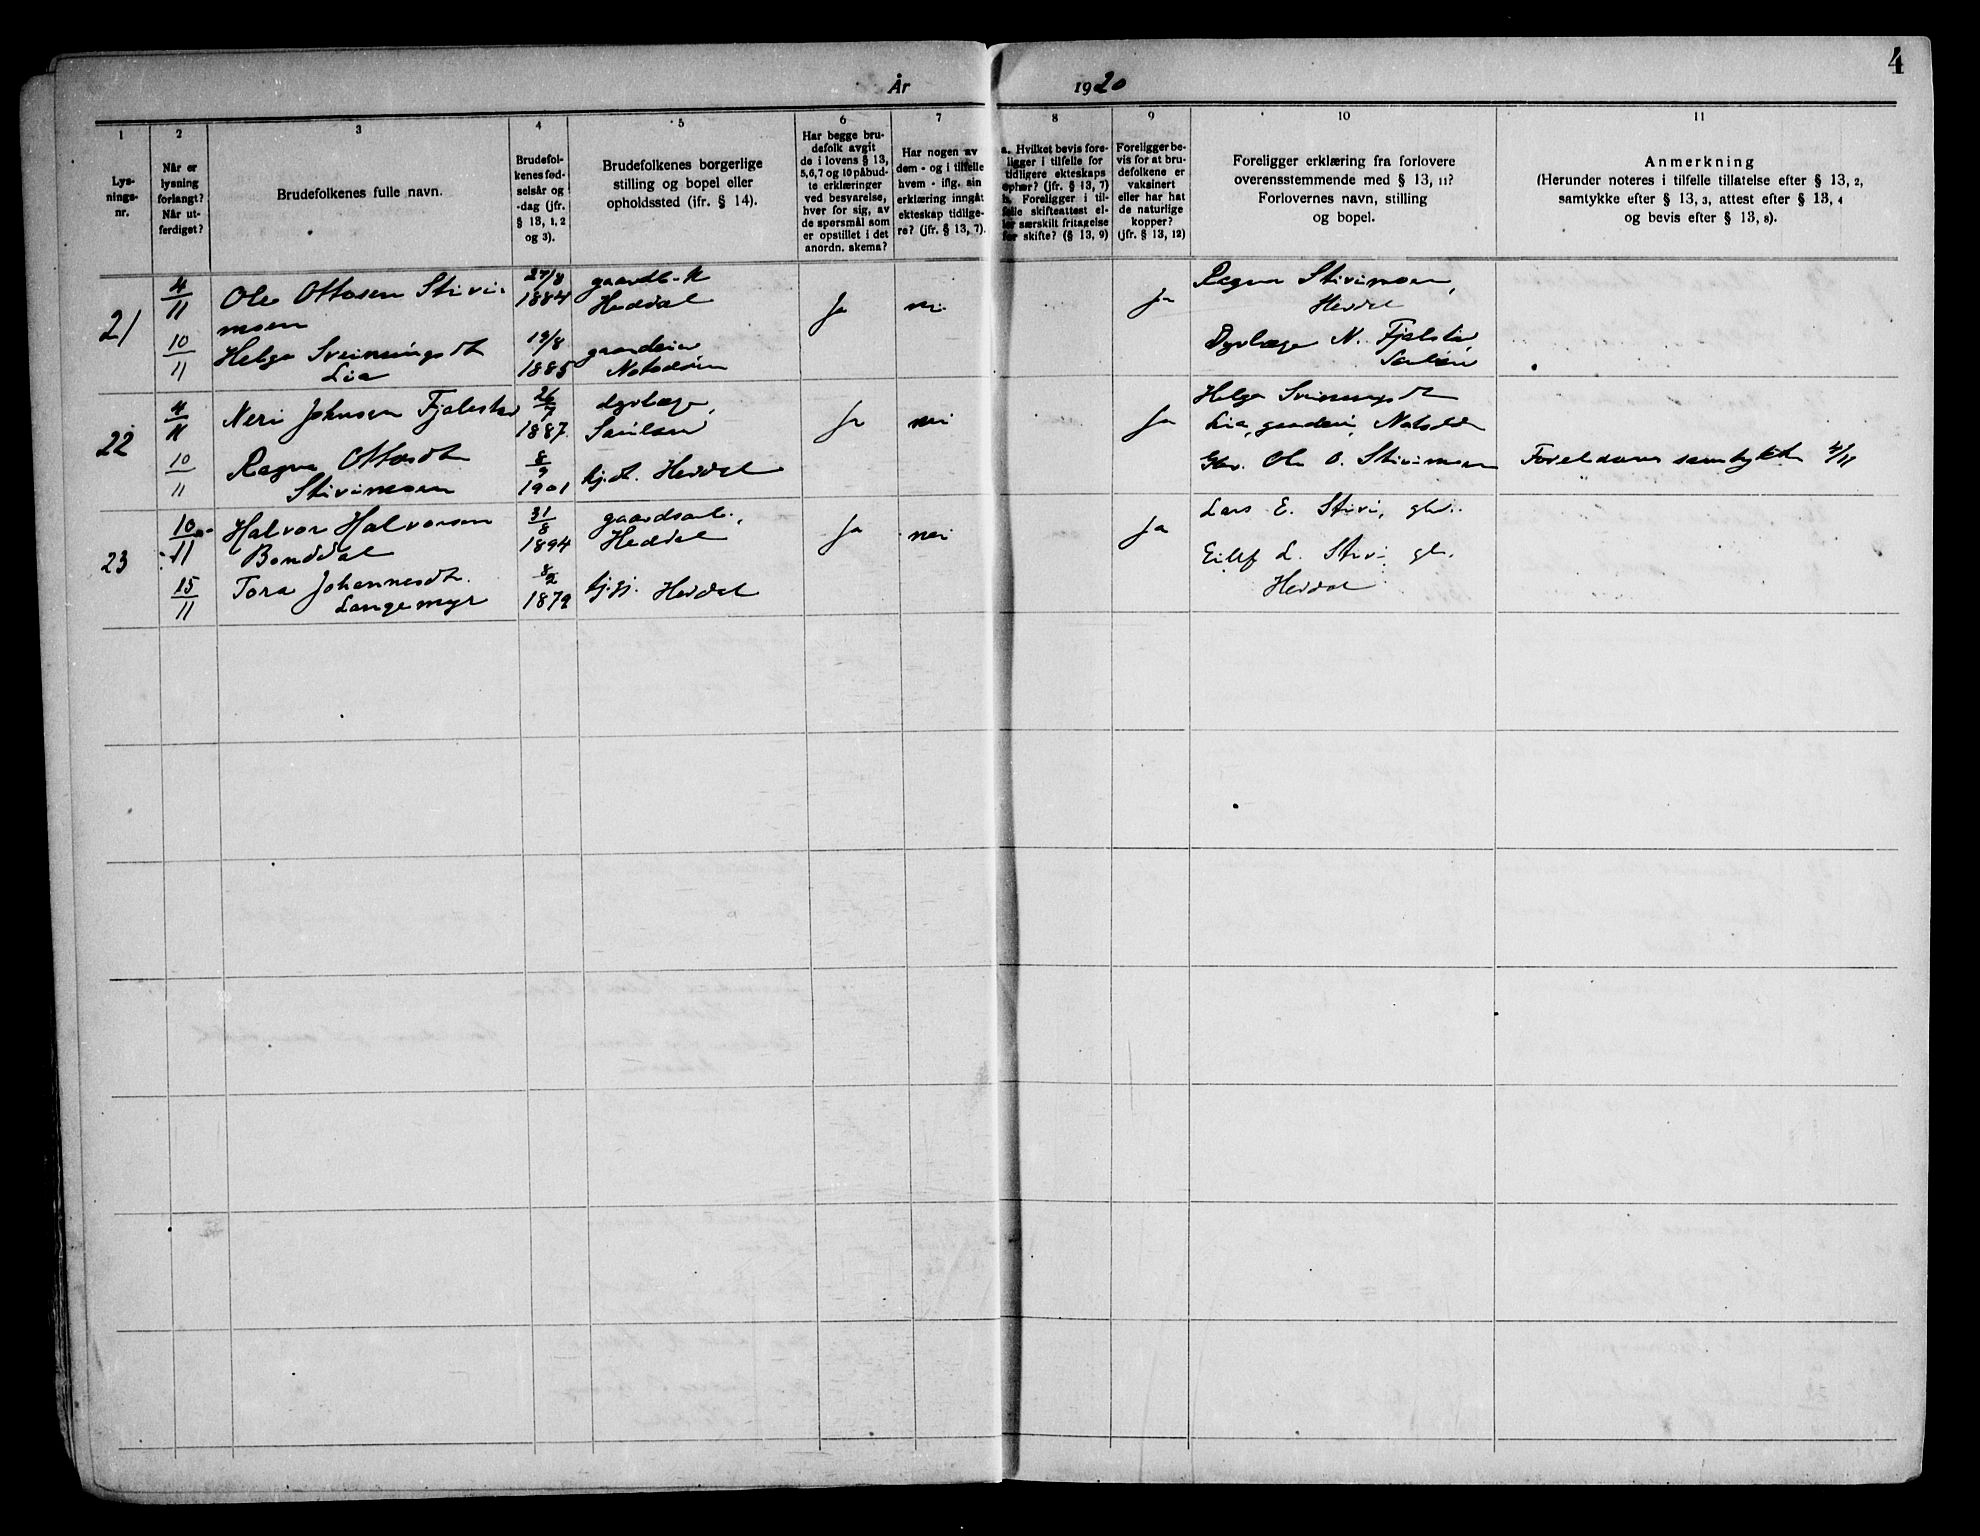 4
År 1920
1
Lys-
nings-
nr.
2
Når er
lysning
forlangt?
Når ut-
ferdiget?
3
Brudefolkenes fulle navn.
4
Brudefol-
kenes fød-
selsår og
-dag (jfr.
§ 13, 1, 2
og 3).
5
Brudefolkenes borgerlige
stilling og bopel eller
opholdssted (ifr. § 14).
6
Har begge bru-
defolk avgit
de i lovens § 13,
5,6,7 og 10 påbud-
te erklæringer
ved besvarelse,
hver for sig, av
de spørsmål som
er opstillet i det
anordn. skema?
7
Har nogen av
dem - og i tilfelle
hvem - iflg. sin
erklæring inngåt
ekteskap tidlige-
re? (jfr. § 13, 7).
8
a. Hvilket bevis fore-
ligger i tilfelle for
tidligere ekteskaps
ophør? (jfr. § 13, 7)
b. Foreligger i til-
felle skifteattest el-
ler særskilt fritagelse
for skifte? (§ 13, 9)
9
Foreligger be-
vis for at bru-
defolkene er
vaksinert
eller har hat
de naturlige
kopper?
(jfr. § 13, 12)
10
Foreligger erklæring fra forlovere
overensstemmende med § 13, 11?
Forlovernes navn, stilling
og bopel.
11
Anmerkning
(Herunder noteres i tilfelle tillatelse efter § 13, 2,
samtykke efter § 13, 3, attest efter § 13, 4
og bevis efter § 13, 8).
21
4/11
10/11
Ole Ottosen Stivi-
moen
Helga Sveinungsdt
Lia
27/8
1884
19/8
1885
Heddal
gaardeier
Notodden
Ja
nei
Ja
Ragna Stivimoen,
Heddal
Dyrlæge N. Fjalestad,
Sauland
22
4/11
10/11
Neri Johnsen Fjalestad
Ragna Ottosdt
Stivimoen
26/7
1887
8/9
1901
dyrlæge,
Sauland
hj.dt. Heddal
Ja
nei
Ja
Helga Sveinungsdt
Lia, gaardeier, Notodden
Gbr. Ole O. Stivimoen
Foreldrenes samtykke 4/11
23
10/11
15/11
Halvor Halvorsen
Bonddal
Tora Johannesdt.
Langemyr
31/8
1894
8/2
1879
gaardsarb.,
Heddal
Heddal
Ja
nei
Ja
Lars E. Stivi, gbr.
Eilef L. Stivi, gbr.
Heddal